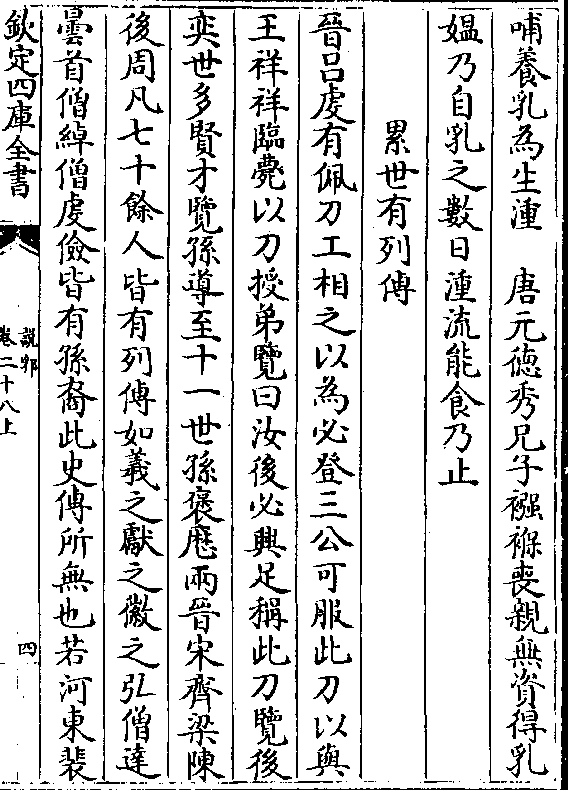 哺養乳為生湩　唐元德秀兄子襁褓喪親無資得乳
媪乃自乳之數日湩流能食乃止
累世有列傳
晉呂䖍有佩刀工相之以為必登三公可服此刀以與
王祥祥臨薨以刀授弟覽曰汝後必興足稱此刀覽後
奕世多賢才覽孫導至十一世孫褒厯兩晉宋齊梁陳
後周凡七十餘人皆有列傳如羲之獻之徽之弘僧達
曇首僧綽僧䖍儉皆有孫裔此史傳所無也若河東裴
欽定四庫全書
說郛
卷二十八上
四